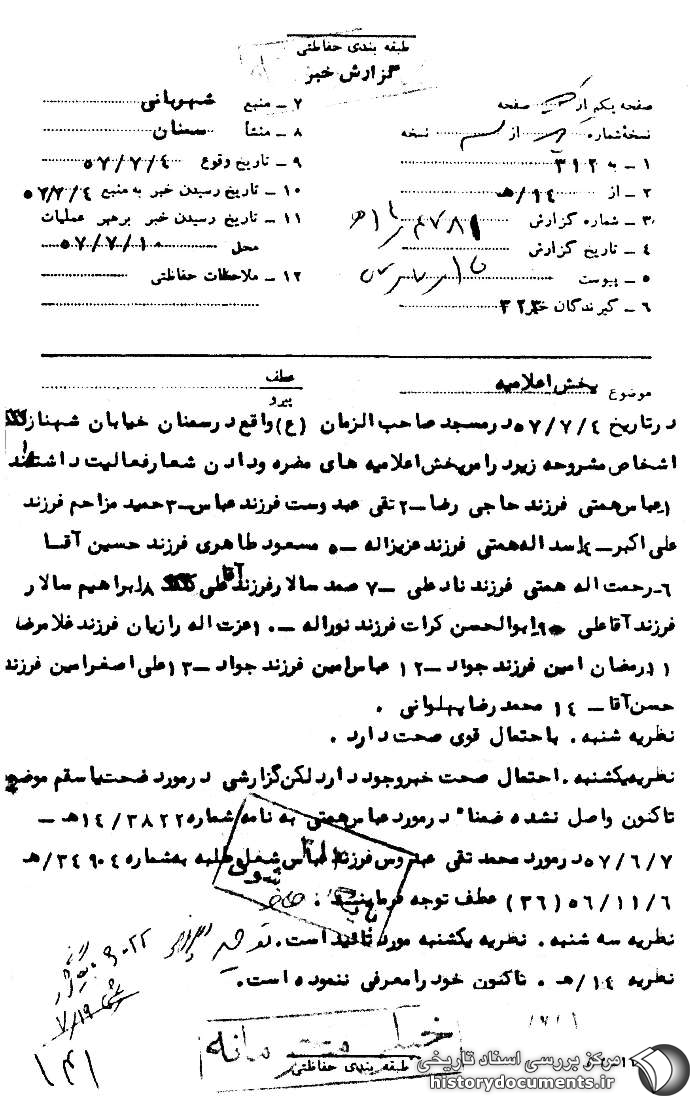 طبقه بندی حفاظتی
گزارش خبر
صفحه یکم از صفحه
نسخهٔ شماره از نسخه
۱ ـ به ۳۱۲
۲ ـ از ۱۴/هـ
۳ ـ شماره گزارش
۴ ـ تاریخ گزارش
۵ ـ پیوست
۶ ـ گیرندگان خبر ۳۲۳
۷ ـ منبع شهربانی
۸ ـ منشأ سمنان
۹ ـ تاریخ وقوع ۵۷/۷/۴
۱۰ ـ تاریخ رسیدن خبر به منبع ۵۷/۷/۴
۱۱ ـ تاریخ رسیدن خبر برهبر عملیات
محل ۵۷/۷/۱۰
۱۲ ـ ملاحظات حفاظتی
موضوع پخش اعلامیه
عطف
پیرو
درتاریخ ۵۷/۷/۴ درمسجد صاحب الزمان (ع) واقع درسمنان خیابان شهناز
اشخاص مشروحه زیر درامرپخش اعلامیه های مضره ودادن شعارفعالیت داشتند
۱ـ عباس همتی فرزند حاجی رضا ـ ۲ تقی عبدوست فرزند عباس ـ ۳ حمید مزاحم فرزند
علی اکبر ـ ۴ اسداله همتی فرزند عزیزاله ـ ۵ مسعود طاهری فرزند حسین آقا
۶ ـ رحمت اله همتی فرزند نادعلی ـ ۷ صمد سالار فرزند آقاعلی ۸ ابراهیم سالار
فرزند آقاعلی ابوالحسن کرات فرزند نوراله ـ ۱۰ عزت اله رازیان فرزند غلامرضا
۱۱ رمضان امین فرزند جواد ـ ۱۲ عباس امین فرزند جواد ـ ۱۳ علی اصغرامین فرزند
حسن آقا ـ ۱۴ محمد رضا پهلوانی .
نظریه شنبه . باحتمال قوی صحت دارد .
نظریه یکشنبه . احتمال صحت خبروجود دارد لکن گزارشی درمورد صحت یا سقم موضوع
تاکنون واصل نشده ضمنا" درمورد عباس همتی به نامه شماره ۱۴/۳۸۲۲هـ ـ
۵۷/۶/۷ درمورد محمد تقی عبدوس فرزند عباس شغل طلبه به شماره ۳۴۹۰۴/هـ
۵۶/۱۱/۶ (۳۶) عطف توجه فرمایند .
نظریه سه شنبه . نظریه یکشنبه مورد تائید است .
نظریه ۱۴/هـ . تاکنون خود رامعرفی ننموده است .
۷/۱۹
۱۴۱
خیلی محرمانه
طبقه بندی حفاظتی
مرکز بررسی اسناد تاریخی
historydocuments.ir